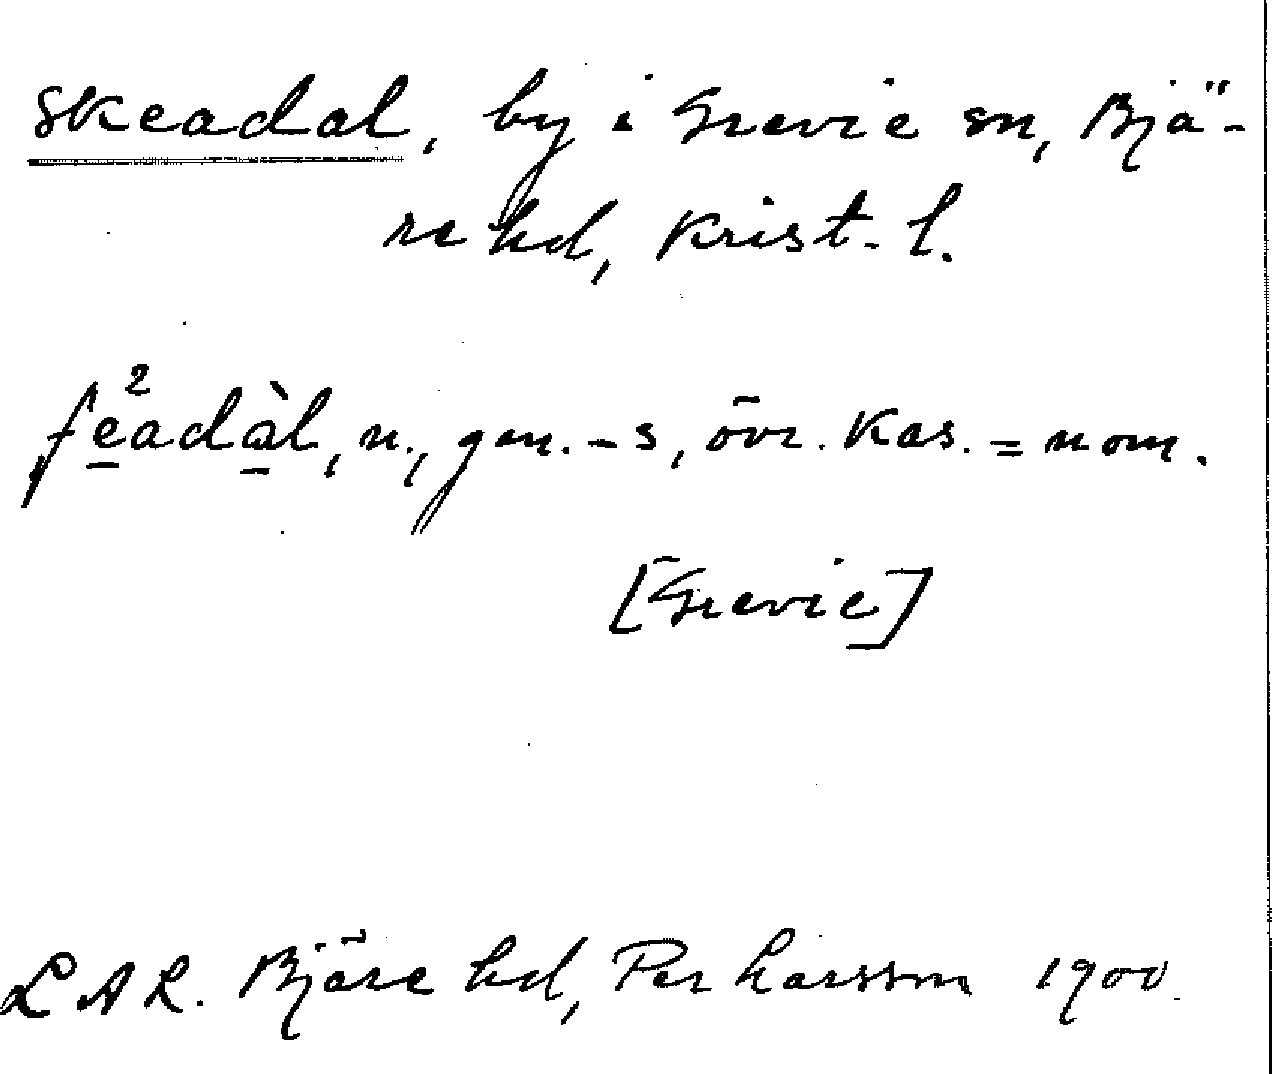 Skeadal, by i Grevie sn, Bjä-
re hd, Krist. l.
ʃe²adàl, n., gen. -s, övr. kas. = nom.
[Grevie]
LAL. Bjäre hd, Per Larsson 1900.